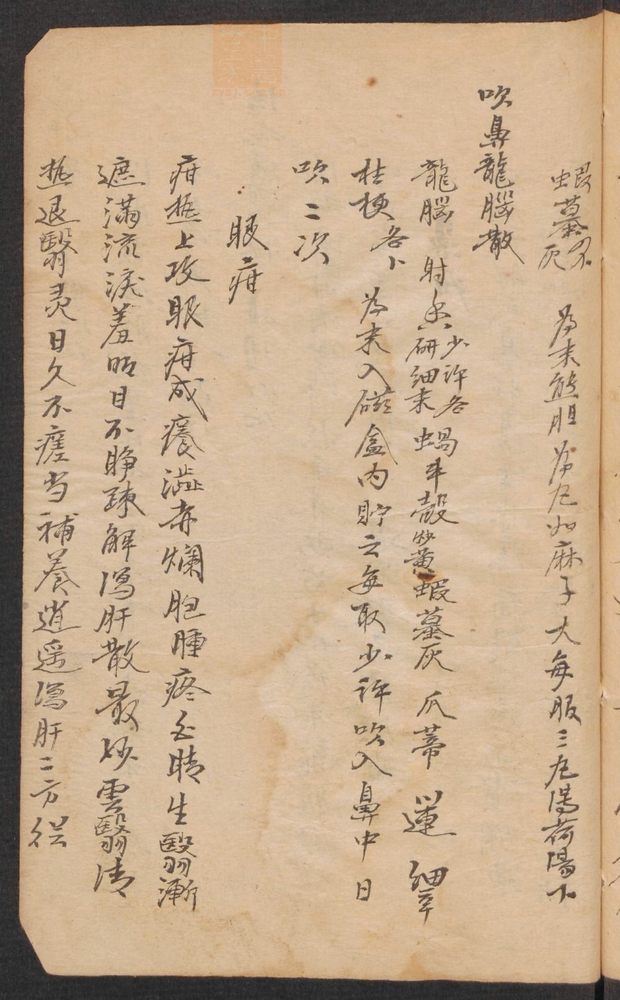 蝦蟇灰 為末熊胆為尤如麻子大每服三尤湯荷湯下
吹鼻龍腦散
龍腦 射香少許各研細末 蝸牛殼炒黃 蝦蟇灰 瓜蒂 蓮 細辛
桔梗各 為末入磁盒內貯之每取少許吹入鼻中日
吹二次
眼疳
疳熱上攻眼疳成癢澁赤爛胞腫疼白睛生翳漸
遮滿流淚羞明目不睜踈解瀉肝散最妙雲翳清
熱退翳灵日久不瘥当補養逍遥瀉肝二方従